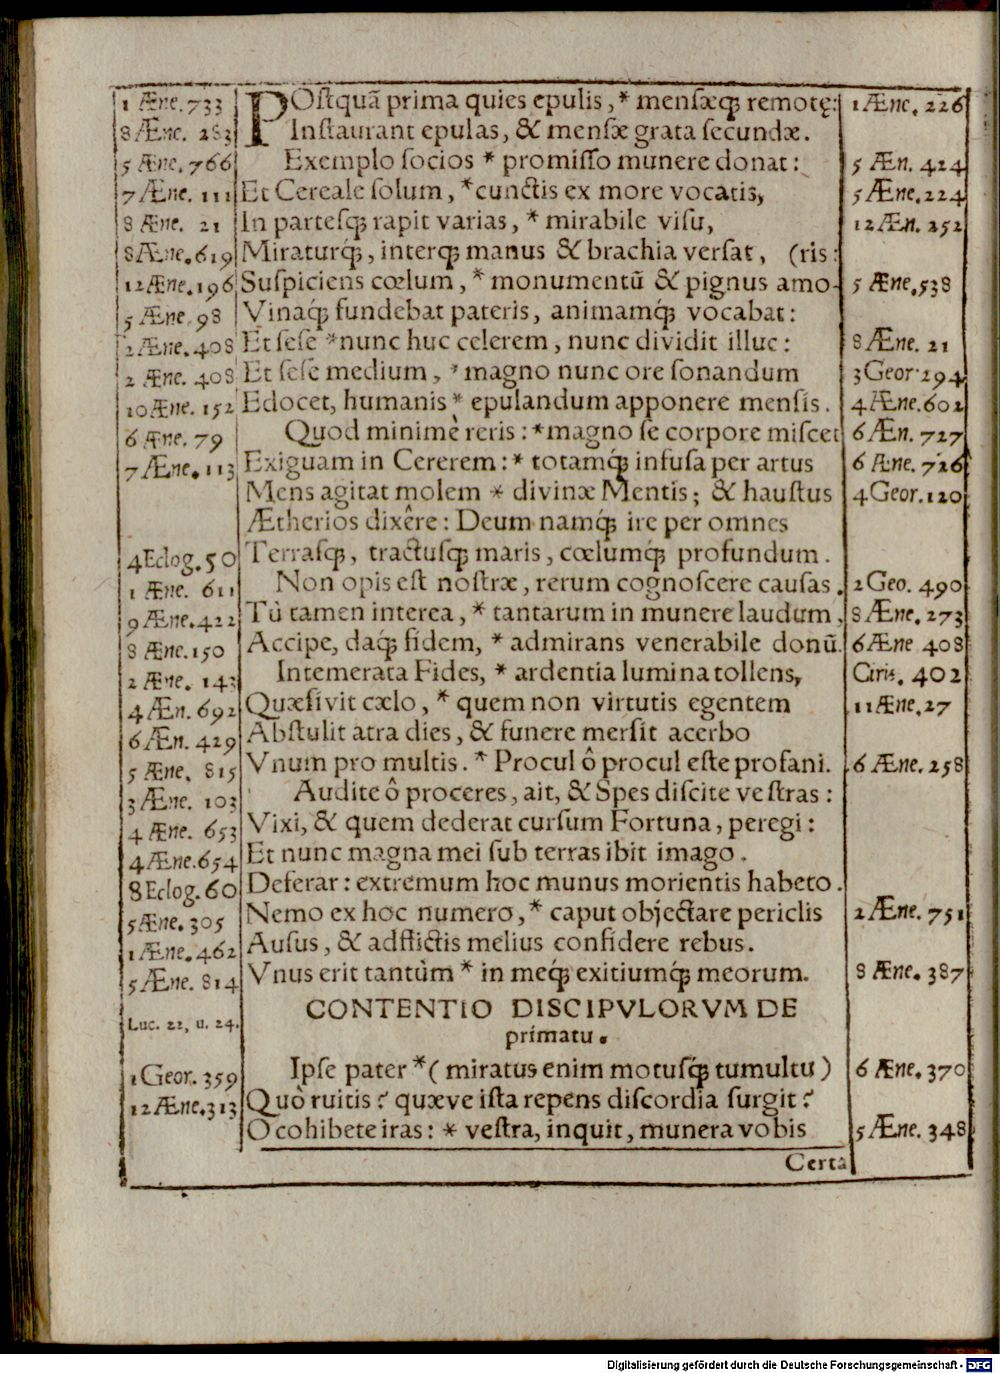 1 Æne. 733 POstquã prima quies epulis, * mensæq; remotę: 1 Æne. 226
8 Æne. 283 Instaurant epulas, & mensæ grata secundæ.
5 Æne. 766 Exemplo socios * promisso munere donat: 5 Æn. 424
7 Æne. 111 Et Cereale solum, * cunctis ex more vocatis, 5 Æne. 224
8 Æne. 21 In partesq; rapit varias, * mirabile visu, 12 Æn. 252
8 Æne. 619 Miraturq́;, interq; manus & brachia versat, (ris:
12 Æne. 196 Suspiciens cœlum, * monumentũ & pignus amo- 5 Æne. 538
5 Æne. 98 Vinaq́; fundebat pateris, animamq́; vocabat:
2 Æne. 408 Et sese * nunc huc celerem, nunc dividit illuc: 8 Æne. 21
2 Æne. 408 Et sese medium, * magno nunc ore sonandum 3 Geor. 294
10 Æne. 152 Edocet, humanis * epulandum apponere mensis. 4 Æne. 602
6 Æne. 79 Quod minimè reris: * magno se corpore miscet 6 Æn. 727
7 Æne. 113 Exiguam in Cererem: * totamq́; infusa per artus 6 Æne. 726
Mens agitat molem * divinæ Mentis; & haustus 4 Geor. 120
Ætherios dixêre: Deum namq́; ire per omnes
4 Eclog. 50 Terrasq;, tractusq; maris, cœlumq́; profundum.
1 Æne. 611 Non opis est nostræ, rerum cognoscere causas. 2 Geo. 490
9 Æne. 422 Tù tamen interea, * tantarum in munere laudum, 8 Æne. 273
8 Æne. 150 Accipe, daq; fidem, * admirans venerabile donũ. 6 Æne 408
2 Æne. 143 Intemerata Fides, * ardentia lumina tollens, Ciris. 402
4 Æn. 692 Quæsivit cælo, * quem non virtutis egentem 11 Æne. 27
6 Æn. 429 Abstulit atra dies, & funere mersit acerbo
5 Æne. 815 Vnum pro multis. * Procul ô procul este profani. 6 Æne. 258
3 Æne. 103 Audite ô proceres, ait, & Spes discite vestras:
4 Æne. 653 Vixi, & quem dederat cursum Fortuna, peregi:
4 Æne. 654 Et nunc magna mei sub terras ibit imago.
8 Eclog. 60 Deferar: extremum hoc munus morientis habeto.
5 Æne. 305 Nemo ex hoc numero, * caput objectare periclis 2 Æne. 751
1 Æne. 462 Ausus, & adflictis melius confidere rebus.
5 Æne. 814 Vnus erit tantùm * in meq́; exitiumq́; meorum. 8 Æne. 387
CONTENTIO DISCIPVLORVM DE
Luc. 22, u. 24. primatu.
1 Geor. 359 Ipse pater * (miratus enim motusq́; tumultu) 6 Æne. 370
12 Æne. 313 Quò ruitis? quæve ista repens discordia surgit?
O cohibete iras: * vestra, inquit, munera vobis 5 Æne. 348
Certa
Digitalisierung gefördert durch die Deutsche Forschungsgemeinschaft - DFG